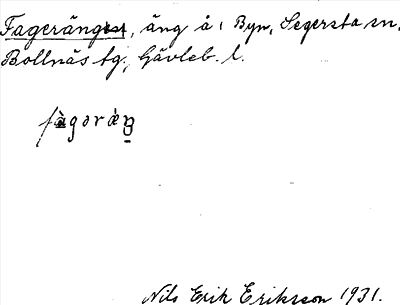 Fagerängen, äng å 1 Byn, Segersta sn.
Bollnäs tg., Gävleb. l.
Nils Erik Eriksson 1931.